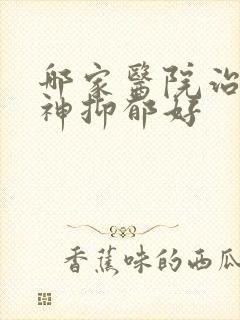 哪家醫院治
神抑郁好
香蕉味的西瓜